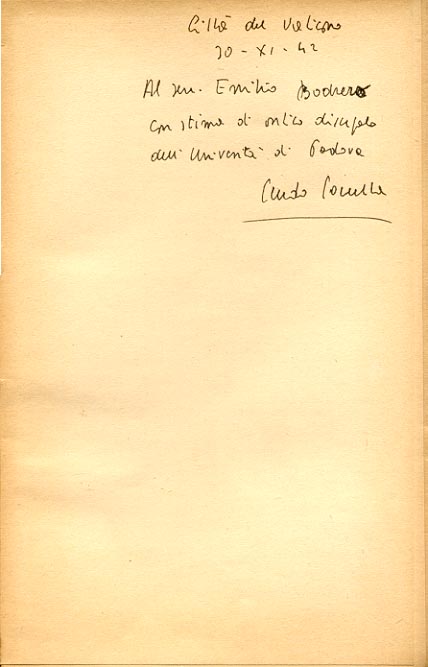 Città del Vaticano
30-XI-42
Al sen. Emilio Bodrero
con stima di antico discepolo
dell'Università di Padova
Guido Gonella